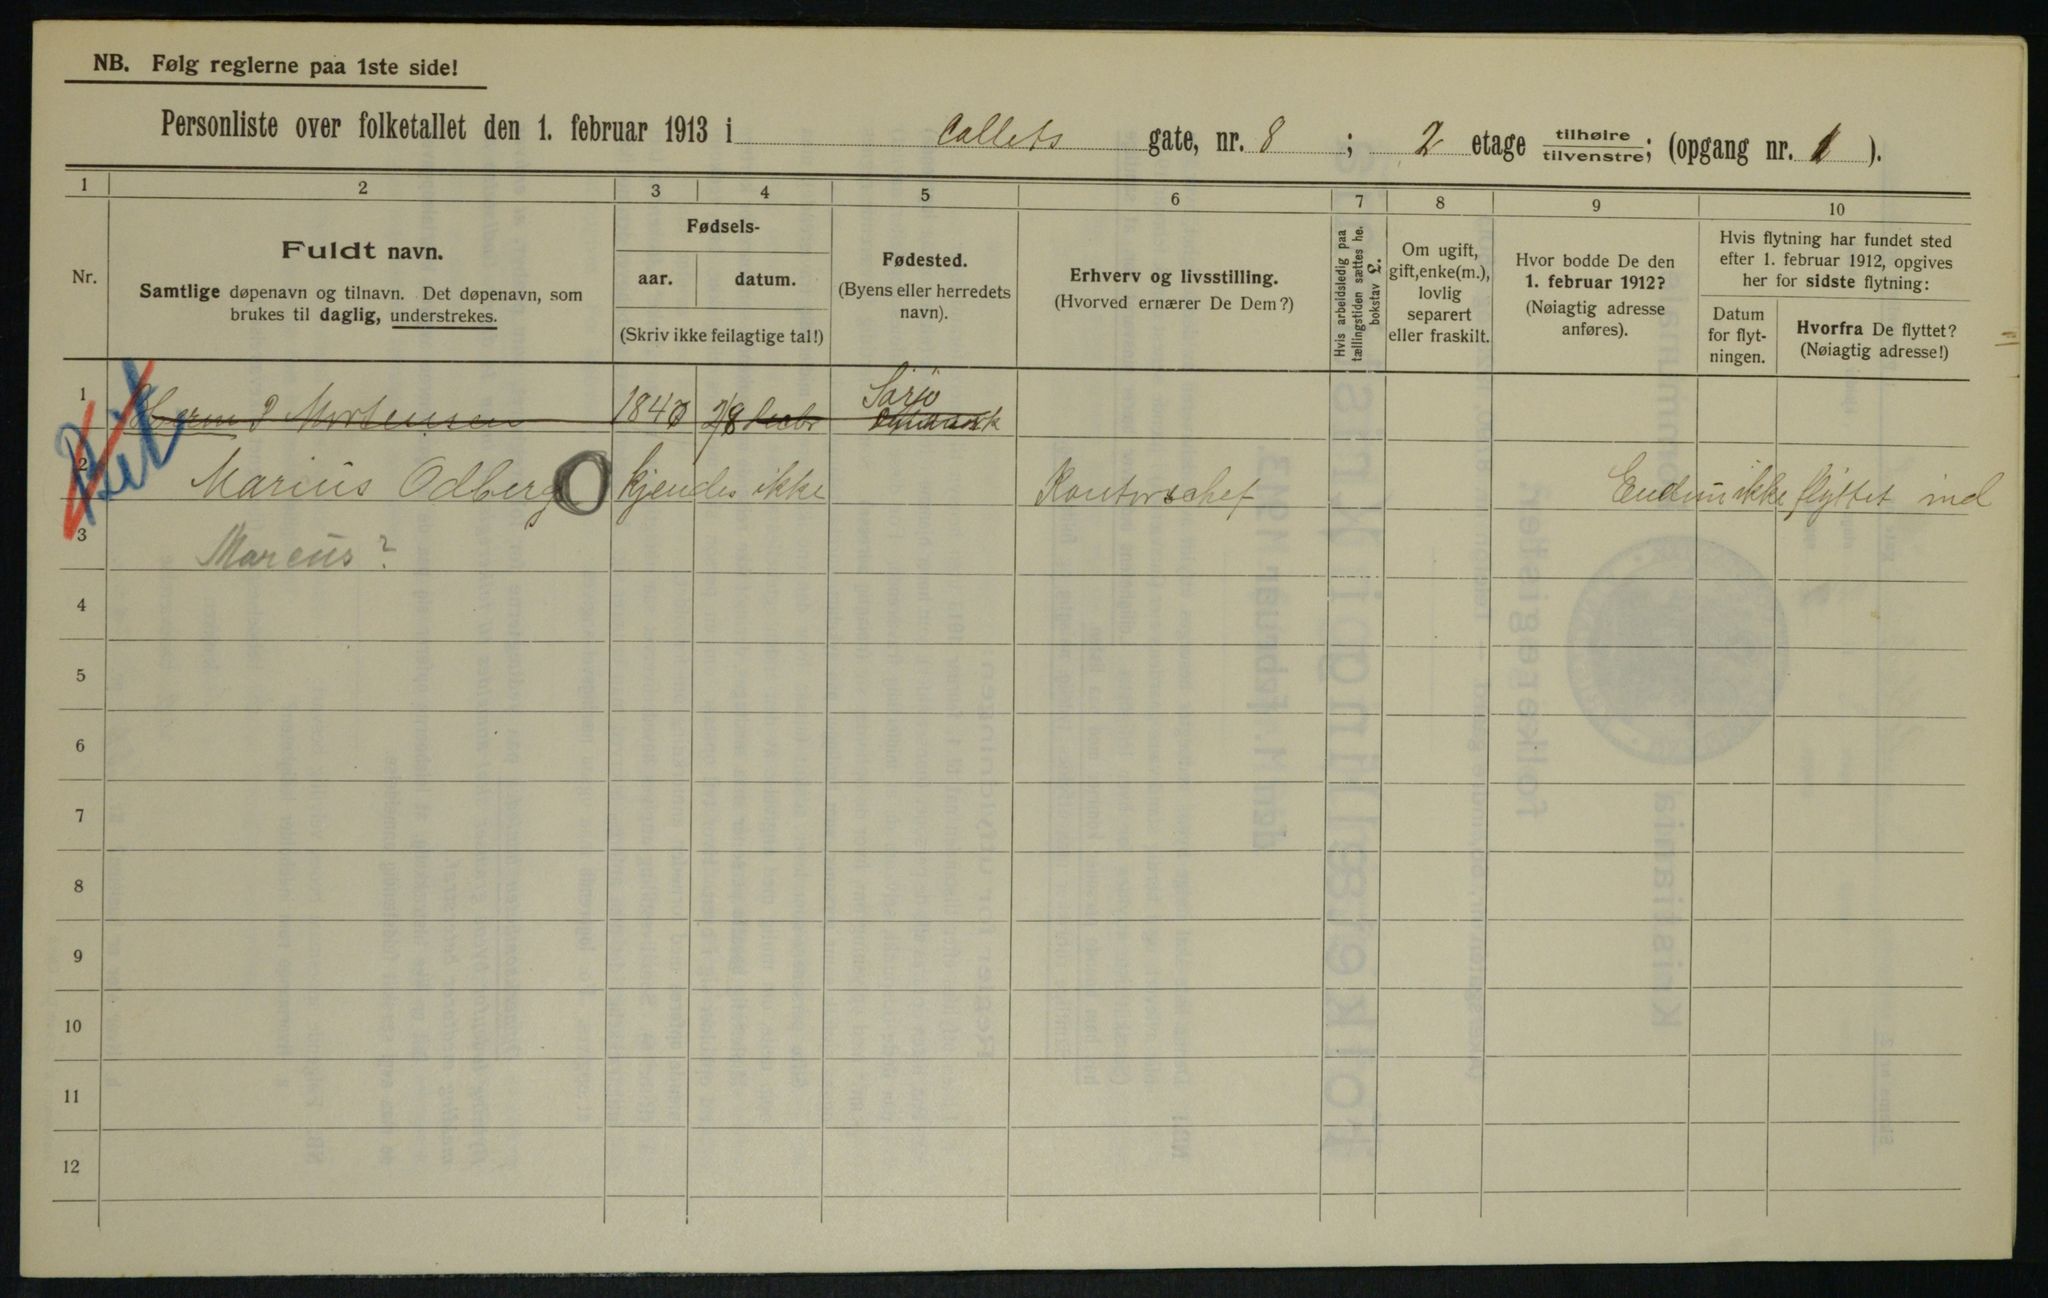 NB. Følg reglerne paa 1ste side!
Personliste over folketallet den 1. februar 1913 i Collets gate, nr. 8 ; 2 etage tilhøire tilvenstre; (opgang nr. 1 ).
1 2 3 4 5 6 7 8 9 10
Nr.
Fuldt navn.
Samtlige døpenavn og tilnavn. Det døpenavn, som
brukes til daglig, understrekes.
Fødsels-
aar. datum.
(Skriv ikke feilagtige tal!)
Fødested.
(Byens eller herredets
navn).
Erhverv og livsstilling.
(Hvorved ernærer De Dem?)
Hvis arbeidsledig paa
tællingstiden sættes he.
bokstav L.
Om ugift,
gift, enke(m.),
lovlig
separert
eller fraskilt.
Hvor bodde De den
1. februar 1912?
(Nøiagtig adresse
anføres).
Hvis flytning har fundet sted
efter 1. februar 1912, opgives
her for sidste flytning:
Datum
for flyt-
ningen.
Hvorfra De flyttet?
(Nøiagtig adresse!)
1 Mortensen
2 Marius Odberg kjendes ikke Kontorschef Endnu ikke flyttet ind
3 Marcus?
4
5
6
7
8
9
10
11
12